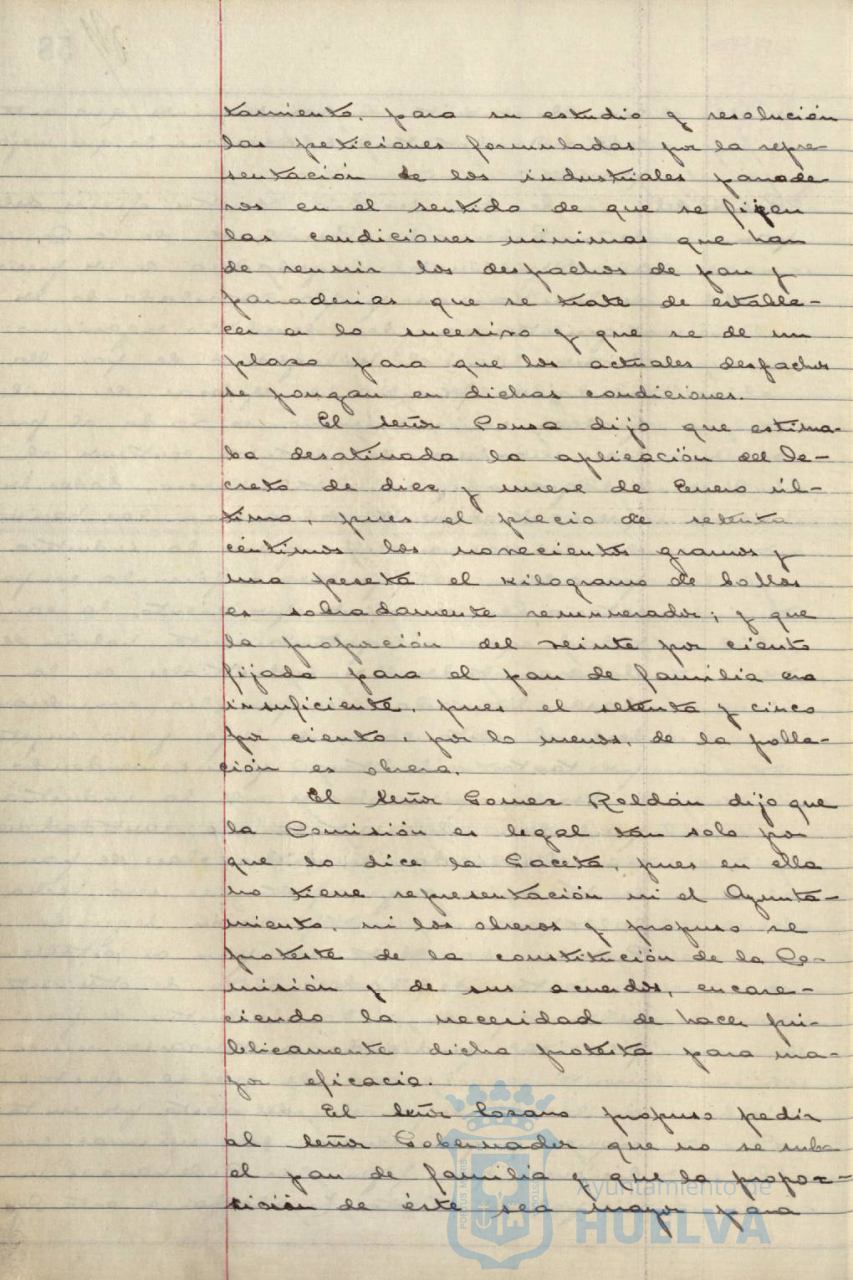 tamiento, para su estudio y resolución
las peticiones formuladas por la repre-
sentación de los industriales panade
ros en el sentido de que se fijen
las condiciones minimas que han
de reunir los despachos de pan y
panaderias que se trate de estable-
cer en lo sucesivo y que se de un
plazo para que los actuales despachos
se pongan en dichas condiciones.
El señor Ponsa dijo que estima-
ba desatinada la aplicación del De-
creto de diez y nueve de Enero úl-
timo, pues el precio de setenta
céntimos los novecientos gramos y
una peseta el kilogramo de bollos
es sobradamente remunerador; y que
la proporción del veinte por ciento
fijada para el pan de familia era
insuficiente, pues el setenta y cinco
por ciento, por lo menos, de la pobla-
ción es obrera.
El señor Gomez Roldán dijo que
la Comisión es legal tan solo por
que lo dice la Gaceta, pues en ella
no tiene representación ni el Ayunta-
miento, ni los obreros y propuso se
proteste de la constitución de la Co-
misión y de sus acuerdos, encare-
ciendo la necesidad de hacer pú-
blicamente dicha protesta para ma-
yor eficacia.
El señor Lozano propuso pedir
al señor Gobernador que no se suba
el pan de familia y que la propor-
ción de éste sea mayor para
Ayuntamiento de
HUELVA